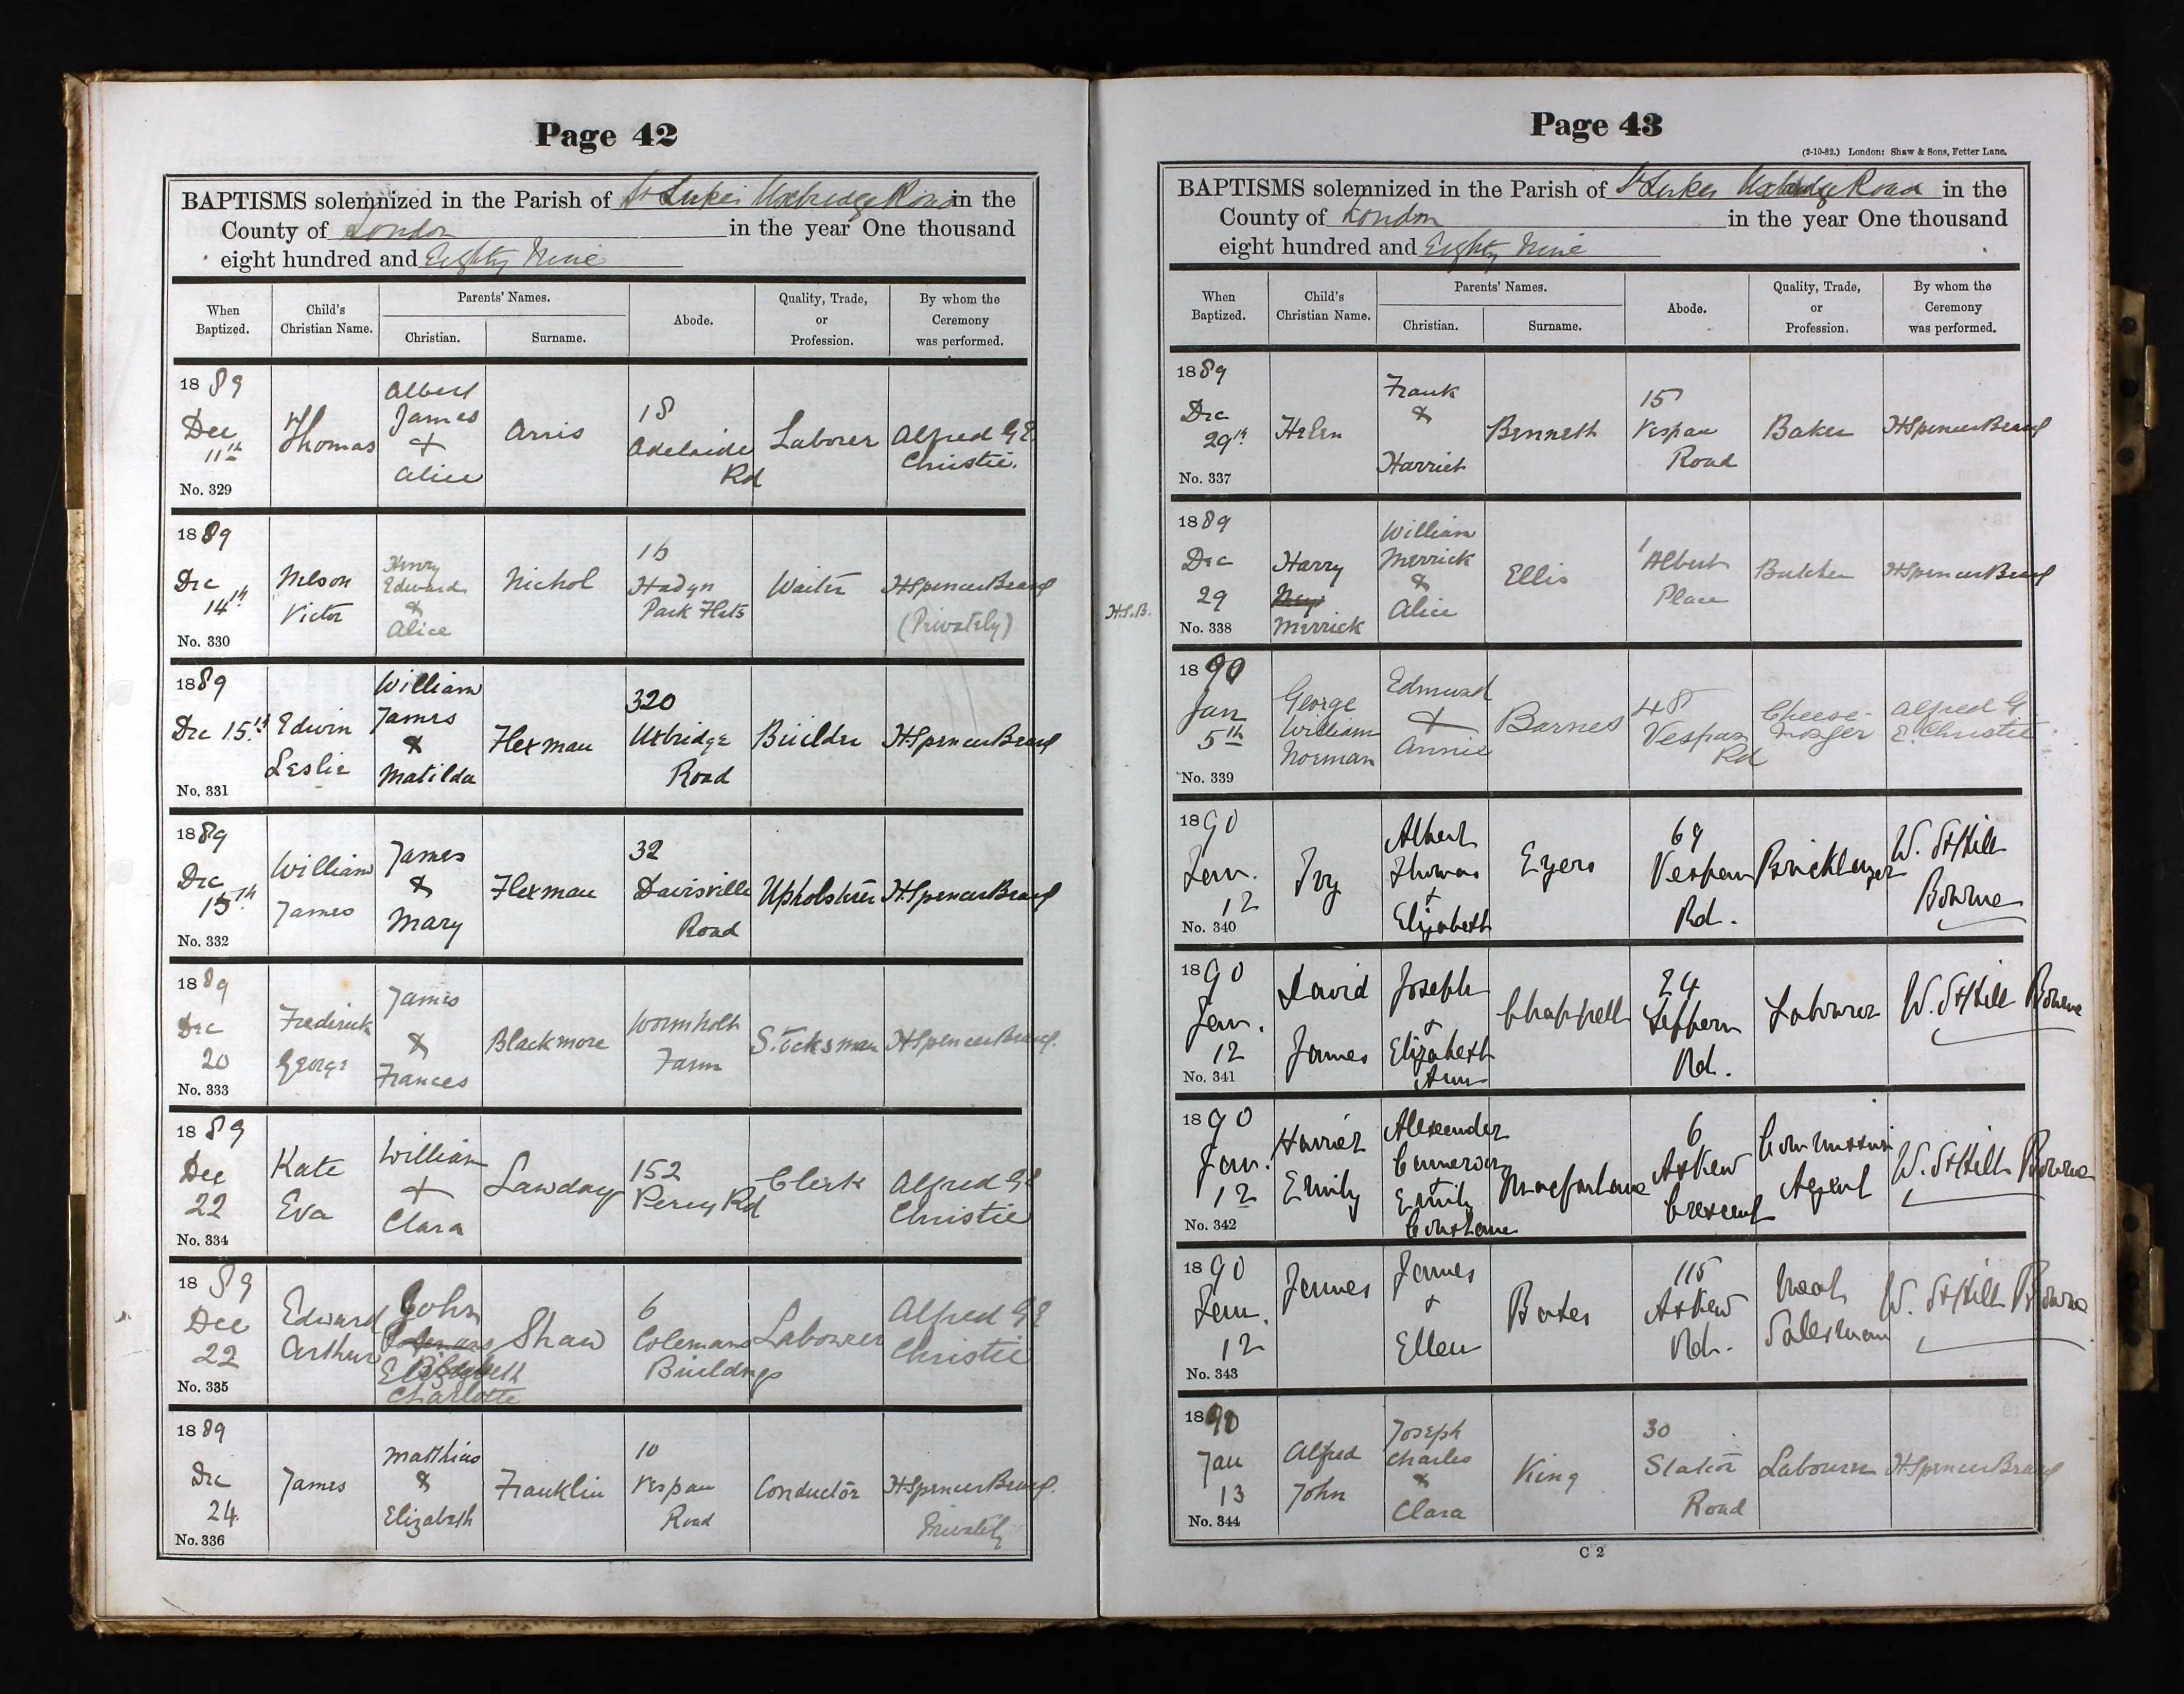 Page 42
BAPTISMS solemnized in the Parish of St Lukes Uxbridge Road in the
County of London in the year One thousand
eight hundred and Eighty Nine
When Baptized. Child's Christian Name. Parents' Names. Christian. Surname. Abode. Quality, Trade, or Profession. By whom the Ceremony was performed.
1889 Dec 11th No. 329 Thomas Albert James + Alice Arris 18 Adelaide Rd Laborer Alfred G E Christie.
1889 Dec 14th No. 330 Nelson Victor Henry Edward & Alice Nichol 16 Hadyn Park Flats Waiter H Spencer (Privately)
1889 Dec 15th No. 331 Edwin Leslie William James & Matilda Flexman 320 Uxbridge Road Builder H Spencer
1889 Dec 15th No. 332 William James James & Mary Flexman 32 Davisville Road Upholsterer H Spencer
1889 Dec 20 No. 333 Frederick George James & Frances Blackmore Wormholt Farm Stocksman H Spencer
1889 Dec 22 No. 334 Kate Eva William + Clara Lawday 152 Percy Rd Clerk Alfred G E Christie
1889 Dec 22 No. 335 Edward Arthur John Elizabeth Charlotte Shaw 6 Colemans Buildings Labourer Alfred G E Christie
1889 Dec 24 No. 336 James Matthias & Elizabeth Franklin 10 Vespan Road Conductor H Spencer Privately
Page 43
(2-10-82.) London: Shaw & Sons, Fetter Lane.
BAPTISMS solemnized in the Parish of St Lukes Uxbridge Road in the
County of London in the year One thousand
eight hundred and Eighty Nine
When Baptized. Child's Christian Name. Parents' Names. Christian. Surname. Abode. Quality, Trade, or Profession. By whom the Ceremony was performed.
1889 Dec 29th No. 337 Helen Frank & Harriet Bennett 15 Vespan Road Baker H Spencer
H.S.B.
1889 Dec 29 No. 338 Harry Merrick William Merrick & Alice Ellis 1 Albert Place Butcher H Spencer
1890 Jan 5th No. 339 George William Norman Edmund + Annie Barnes 48 Vespan Rd Cheese-monger Alfred G E. Christie
1890 Jan. 12 No. 340 Ivy Albert Thomas + Elizabeth Eyers 69 Vespan Rd. Bricklayer W. St Hill Bourne
1890 Jan. 12 No. 341 David James Joseph + Elizabeth Ann Chappell 24 Rd. Labourer W. St Hill Bourne
1890 Jan. 12 No. 342 Harriet Emily Alexander Cameron + Emily Constance Macfarlane 6 Askew Crescent Commission Agent W. St Hill Bourne
1890 Jan. 12 No. 343 James James + Ellen Bates 115 Askew Rd. Meat Salesman W. St Hill Bourne
1890 Jan 13 No. 344 Alfred John Joseph Charles & Clara King 30 Station Road Labourer H Spencer
C 2